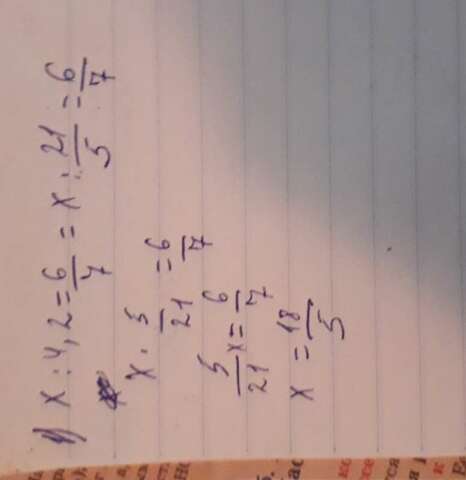 1) x : 4,2 = 6/7 = x : 21/5 = 6/7
x · 5/21 = 6/7
5/21 x = 6/7
x = 18/5